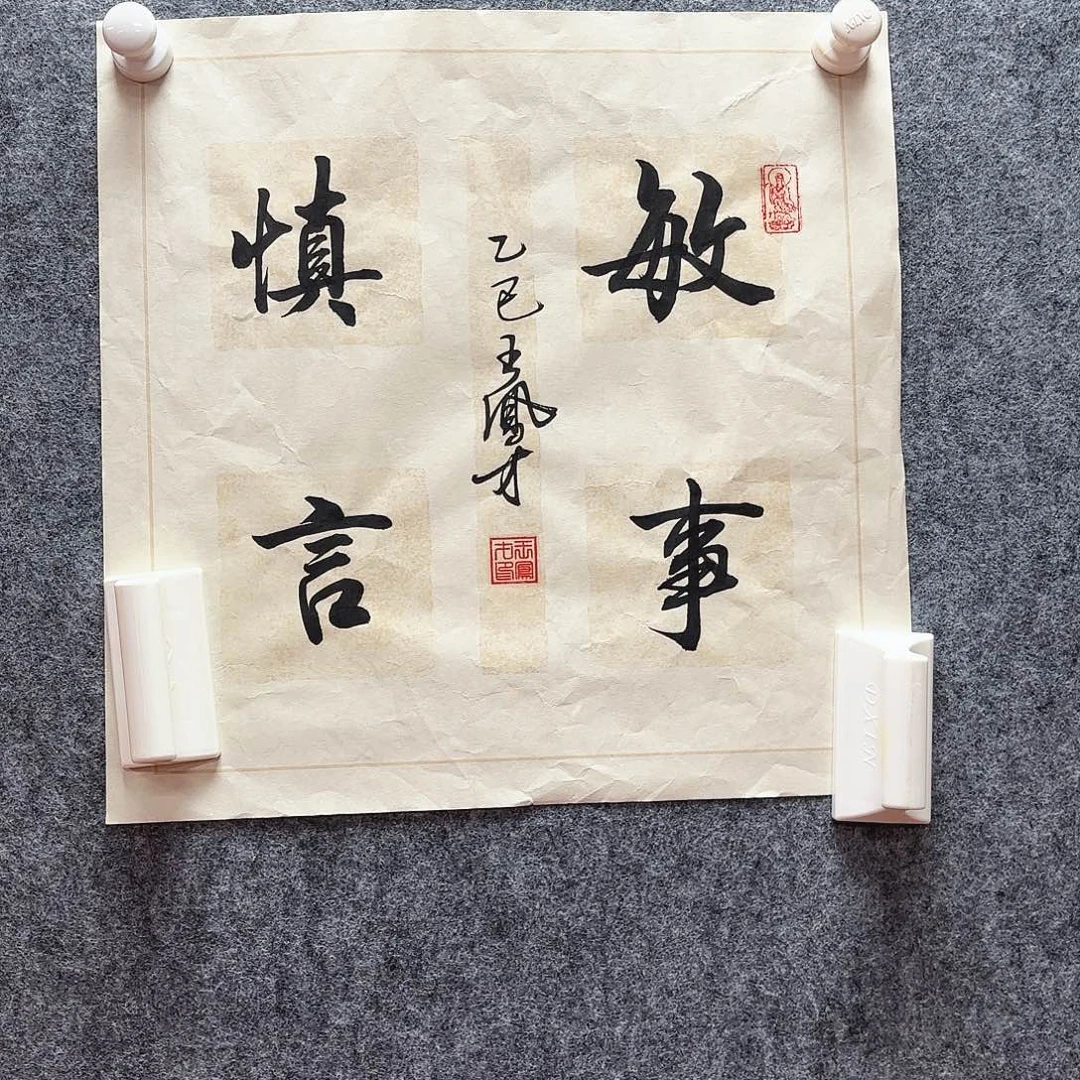 敏事
慎言
乙巳王鳳才